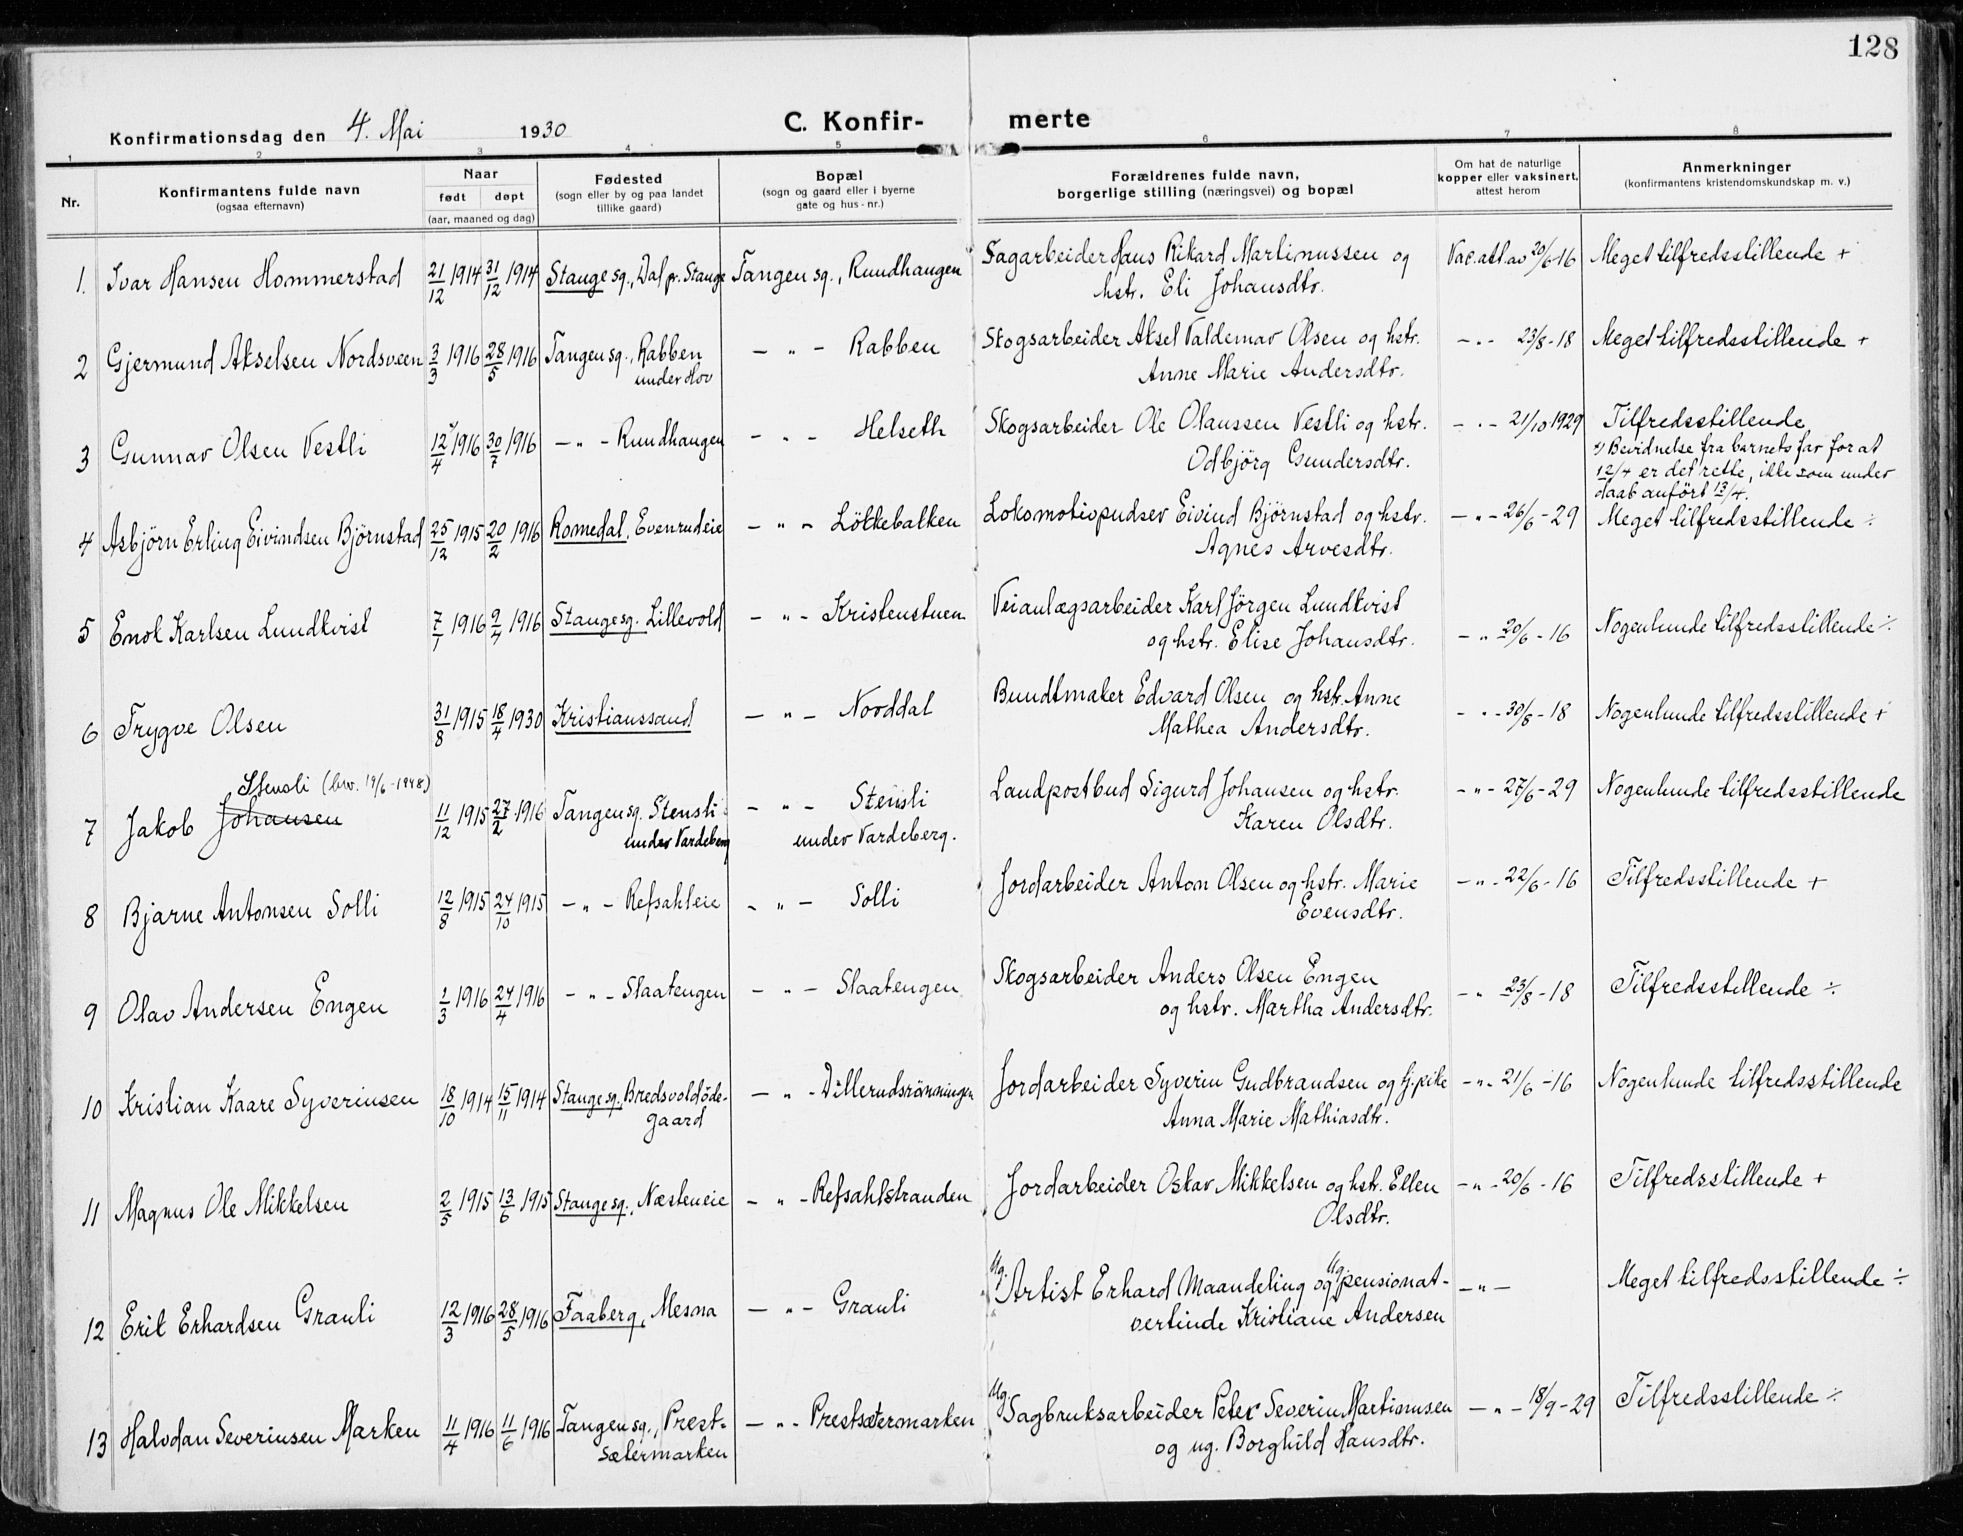 128
Konfirmationsdag den 4. Mai 1930 C. Konfir- merte
1 2 3 4 5 6 7 8
Nr. Konfirmantens fulde navn (ogsaa efternavn) Naar født døpt (aar, maaned og dag) Fødested (sogn eller by og paa landet tillike gaard) Bopæl (sogn og gaard eller i byerne gate og hus-nr.) Forældrenes fulde navn, borgerlige stilling (næringsvei) og bopæl Om hat de naturlige kopper eller vaksinert, attest herom Anmerkninger (konfirmantens kristendomskundskap m. v.)
1. Ivar Hansen Hommerstad 21/12 1914 31/12 1914 Stange sg., Dal pr. Stange Tangen sg., Rundhaugen Sagarbeider Hans Rikard Martinussen og Vac. att. av 20/6-16 Meget tilfredsstillende +
hstr. Eli Johansdtr.
2 Gjermund Akselsen Nordsveen 3/3 1916 28/5 1916 Tangen sg., Rabben – " – Rabben Skogsarbeider Aksel Valdemar Olsen og hstr. – " – 23/8-18 Meget tilfredsstillende +
under Hov Anne Marie Andersdtr.
3 Gunnar Olsen Vestli 12/4 1916 30/7 1916 – " – Rundhaugen – " – Helseth Skogsarbeider Ole Olaussen Vestli og hstr. – " – 21/10 1929 Tilfredsstillende
Odbjörg Gundersdtr. Bevidnelse fra barnets far for at
12/4 er det rette, ikke som under
daab anført 13/4.
4 Asbjörn Erling Eivindsen Björnstad 25/12 1915 20/2 1916 Romedal, Evenrudeie – " – Lökkebakken Lokomotivpudser Eivind Björnstad og hstr. – " – 26/6-29 Meget tilfredsstillende ÷
Agnes Arvesdtr.
5 Enok Karlsen Lundkvist 7/1 1916 9/4 1916 Stange sg. Lillevold – " – Kristenstuen Veianlægsarbeider Karl Jörgen Lundkvist
og hstr. Elise Johansdtr. – " 20/6-16 Nogenlunde tilfredsstillende ÷
6 Trygve Olsen 31/8 1915 18/4 1930 Kristianssand – " – Norddal Bundtmaker Edvard Olsen og hstr. Anne – " – 30/8-18 Nogenlunde tilfredsstillende +
Mathea Andersdtr.
Stensli (bev. 19/6-1948)
7 Jakob Johansen 11/12 1915 27/2 1916 Tangen sg. Stensli – " – Stensli Landpostbud Sigurd Johansen og hstr. – " – 27/6-29 Nogenlunde tilfredsstillende
under Vardeberg under Vardeberg. Karen Olsdtr.
8 Bjarne Antonsen Solli 12/8 1915 24/10 1915 – " – Refsahleie – " – Solli Jordarbeider Anton Olsen og hstr. Marie – " – 22/6-16 Tilfredsstillende +
Evensdtr.
9 Olav Andersen Engen 1/3 1916 24/4 1916 – " – Slaatengen – " – Slaatengen Skogsarbeider Anders Olsen Engen – " 23/8-18 Tilfredsstillende ÷
og hstr. Martha Andersdtr.
10 Kristian Kaare Syverinsen 18/10 1914 15/11 1914 Stange sg., Bredsvoldöde- – " – Dillerudsrönningen Jordarbeider Syverin Gudbrandsen og tj.pike – " – 21/6-16 Nogenlunde tilfredsstillende
gaard Anna Marie Mathiasdtr.
11 Magnus Ole Mikkelsen 2/5 1915 13/6 1915 Stange sg., Næsteneie – " – Refsahlstranden Jordarbeider Oskar Mikkelsen og hstr. Ellen – " – 20/6-16 Tilfredsstillende +
Olsdtr.
12 Erik Erhardsen Granli 12/3 1916 28/5 1916 Faaberg, Mesna – " – Granli Ug. Artist Erhard Maandeling og ug. pensionat- – " – Meget tilfredsstillende ÷
vertinde Kristiane Andersen
13 Halvdan Severinsen Marken 11/4 1916 11/6 1916 Tangen sg., Prest- – " – Prestsætermarken Ug. Sagbruksarbeider Peter Severin Martinusen – " – 18/9-29 Tilfredsstillende ÷
sætermarken og ug. Borghild Hansdtr.